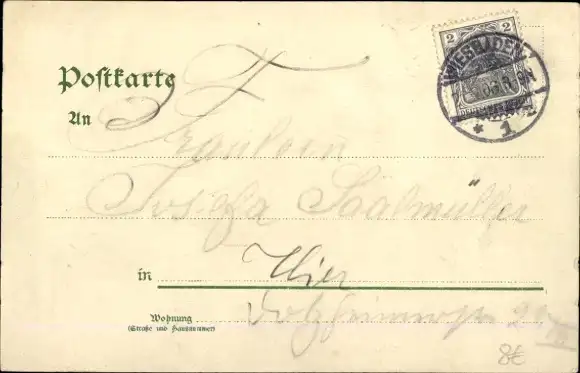 2
WIESBADEN
Postkarte
An
Fräulein
Josefa Saalmüller
in Hier
Wohnung
(Straße und Hausnummer)
Dotzheimerstr
* 1
8€